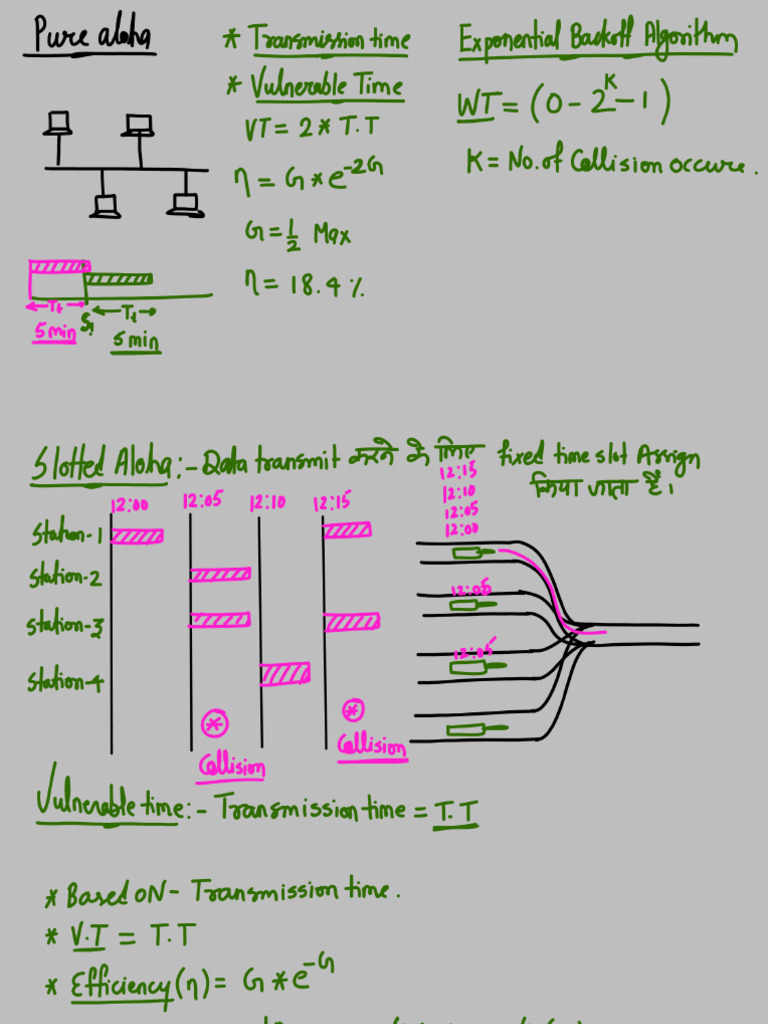 Pure aloha
* Transmission time
* Vulnerable Time
VT = 2 * T.T
η = G * e^-2G
G = 1/2 Max
η = 18.4 %
Exponential Backoff Algorithm
WT = (0 - 2^K - 1)
K = No. of Collision occure.
Tt
Tt
5 min
5 min
Slotted Aloha :- Data transmit करने के लिए fixed time slot Assign
किया जाता है।
12:00 12:05 12:10 12:15
Station-1
Station-2
Station-3
Station-4
* *
Collision Collision
12:15
12:10
12:05
12:00
12:05
12:05
Vulnerable time :- Transmission time = T.T
* Based ON - Transmission time.
* V.T = T.T
* Efficiency (η) = G * e^-G